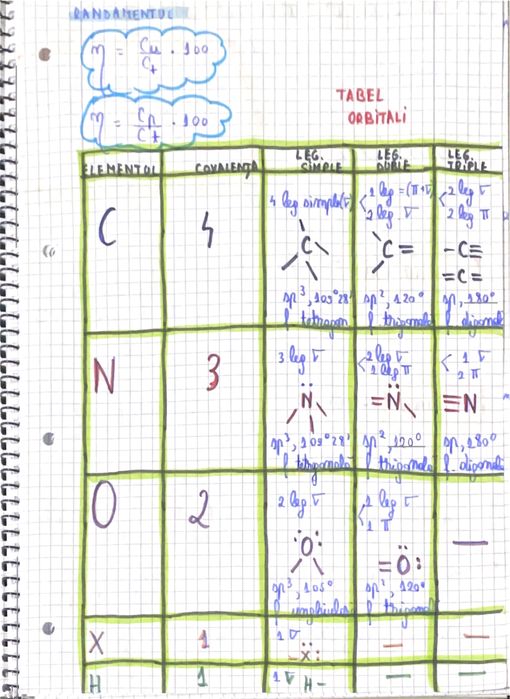 RANDAMENTUL
η = Cu/Ct · 100
η = Cp/Ct · 100
TABEL
ORBITALI
ELEMENTUL COVALENȚA LEG. SIMPLE LEG. DUBLE LEG. TRIPLE
C 4
4 leg simple(σ)
sp³, 109°28'
f tetragon
<1 leg =(π+σ)
2 leg σ
C=
sp², 120°
f trigonală
<2 leg σ
2 leg π
-C≡
=C=
sp, 180°
f digonală
N 3
3 leg σ
N
sp³, 109°28'
f tetragonală
<2 leg σ
1 leg π
=N
sp², 120°
f trigonală
< 1 σ
2 π
≡N
sp, 180°
f. digonală
O 2
2 leg σ
O
sp³, 105°
f unghiular
<1 leg σ
1 π
=O:
sp², 120°
f trigonal
—
X 1 1σ -X: — —
H 1 1σ H- — —